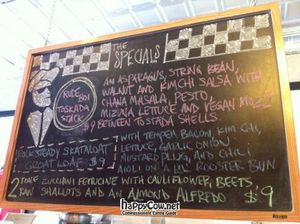 THE SPECIALS
RUDE BOI
TOSTADA
STACK
AN ASPARAGUS, STRING BEAN,
WALNUT AND KIMCHI SALSA WITH
CHANA MASALA, PESTO,
MIZUNA LETTUCE AND VEGAN MOZZ
$9 BETWEEN TOSTADA SHELLS
ROCKSTEADY SKATALOAF
LOAF $9
WITH TEMPEH BACON, KIM CHI,
LETTUCE, GARLIC ONION
MUSTARD PLUG, AND CHILI
AIOLI ON A ROOSTER BUN
2 TONE ZUCCHINI FETTUCINE WITH CAULIFLOWER, BEETS,
RAW SHALLOTS AND AN ALMOND ALFREDO $9
HappyCow.net
Compassionate Eating Guide